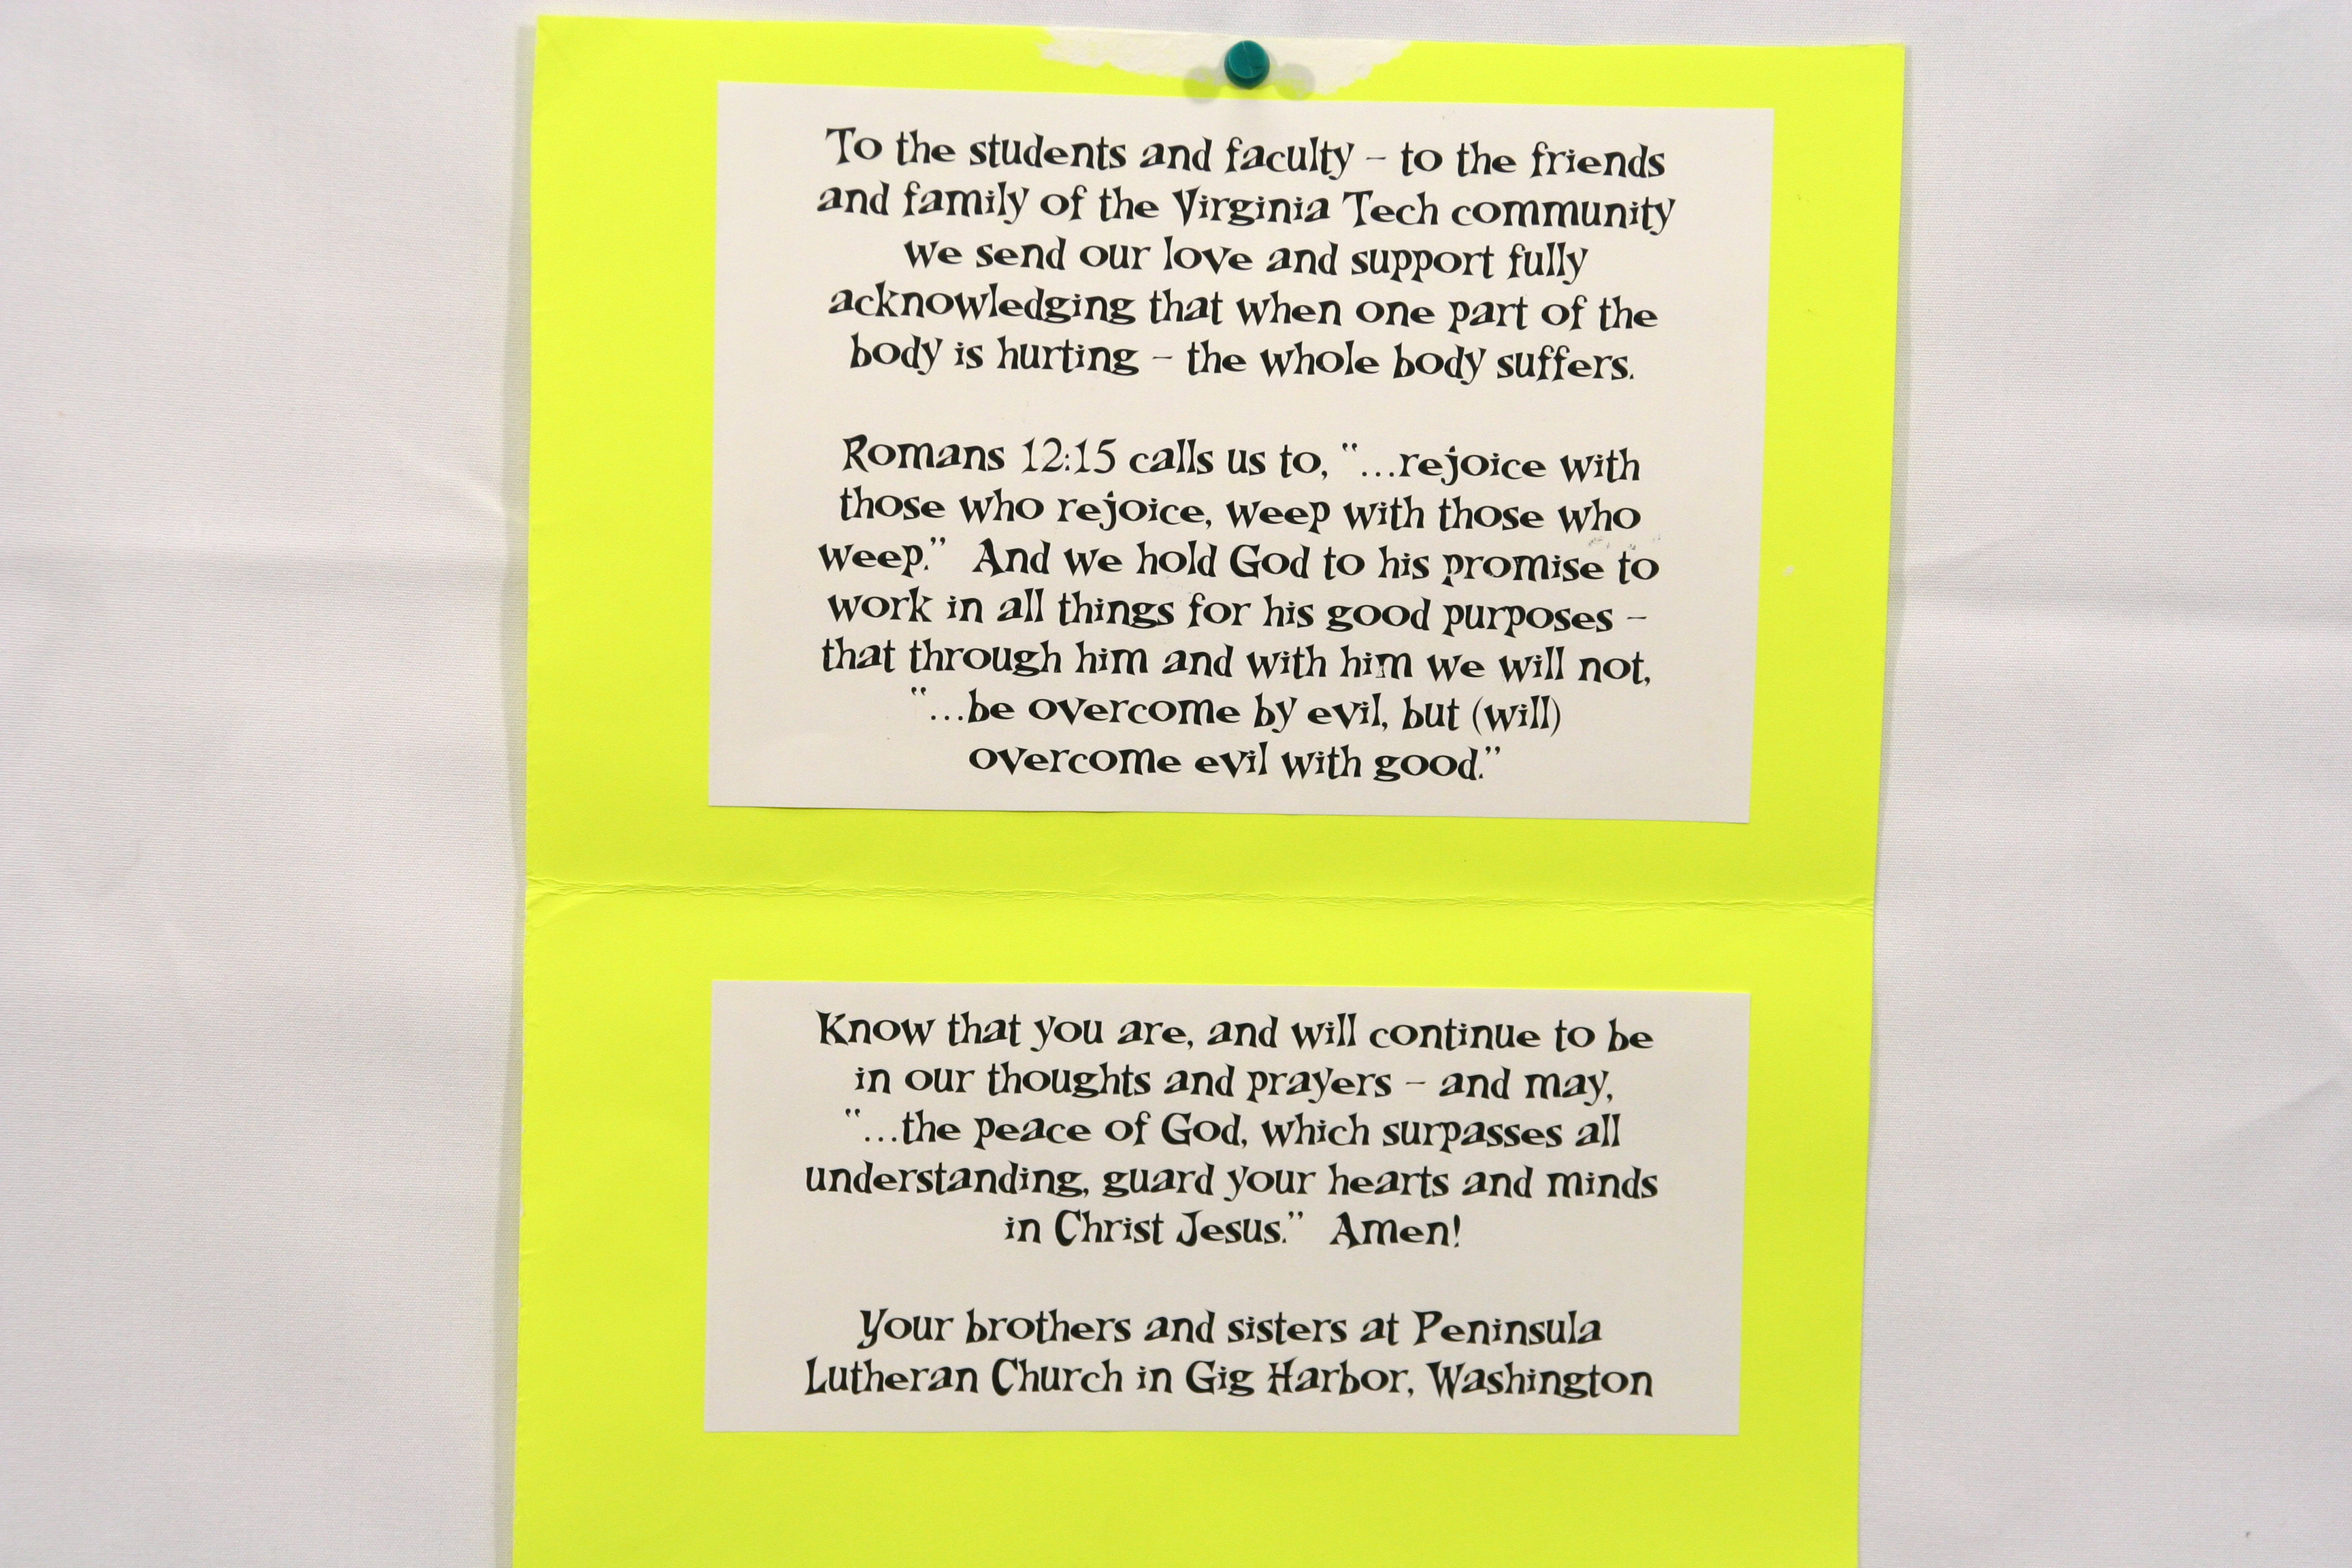 To the students and faculty – to the friends
and family of the Virginia Tech community
we send our love and support fully
acknowledging that when one part of the
body is hurting – the whole body suffers.
Romans 12:15 calls us to, "...rejoice with
those who rejoice, weep with those who
weep." And we hold God to his promise to
work in all things for his good purposes –
that through him and with him we will not,
"...be overcome by evil, but (will)
overcome evil with good."
Know that you are, and will continue to be
in our thoughts and prayers – and may,
"...the peace of God, which surpasses all
understanding, guard your hearts and minds
in Christ Jesus." Amen!
Your brothers and sisters at Peninsula
Lutheran Church in Gig Harbor, Washington